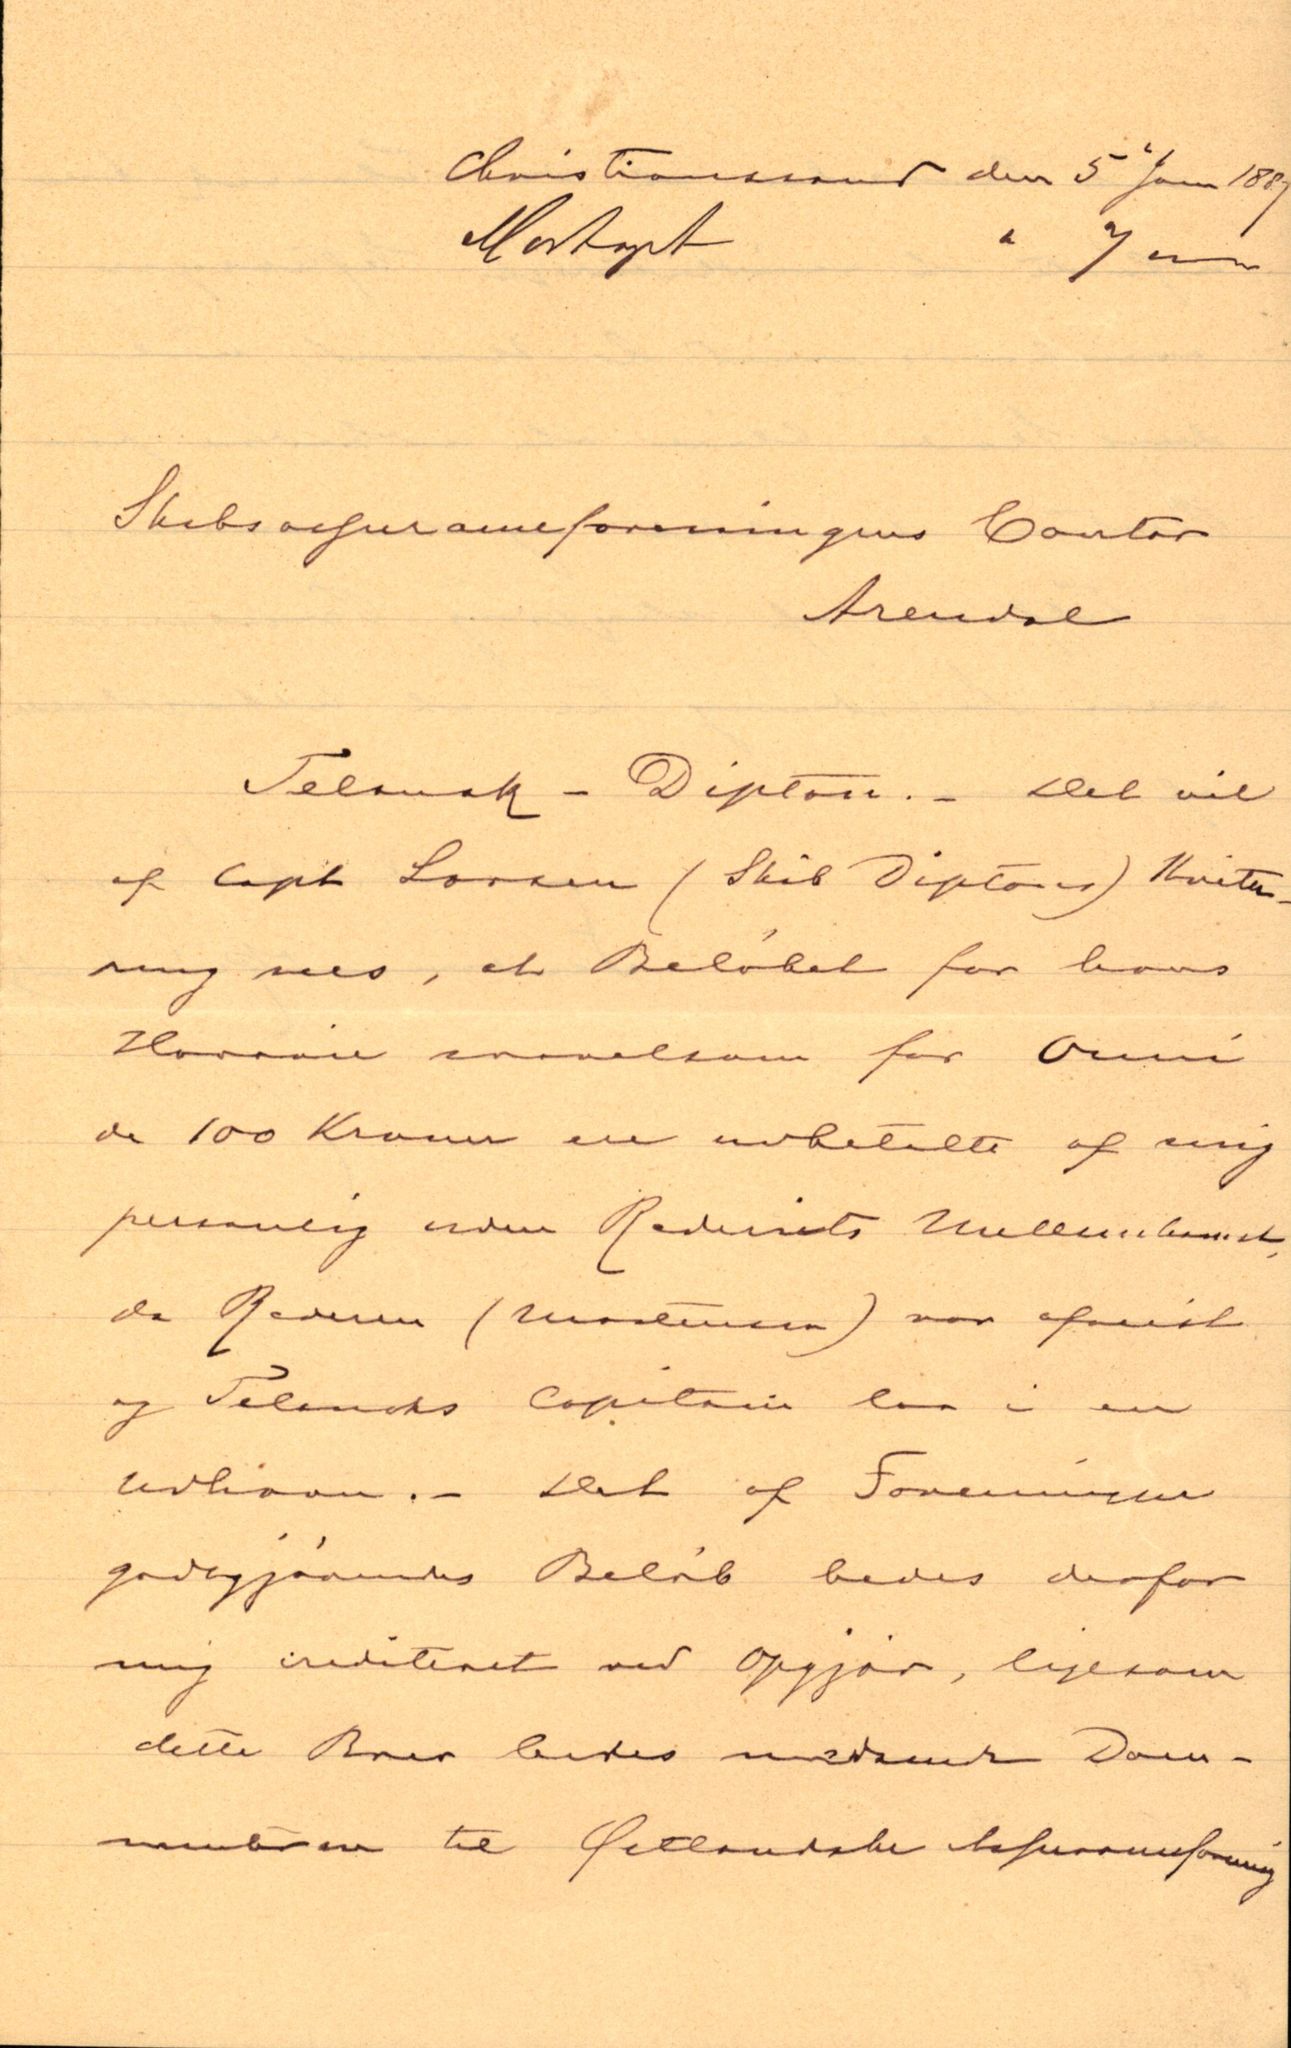 Christianssand den 5' Jan 1887
Modtaget " 7 "
Skibsassuranceforeningens Contor
Arendal
Telanak - Dipton. - Det vil
af Capt Larsen (Skib Diptons) Kvitte-
ring sees, at Beløbet for hans
Havarie saavelsom for
de 100 Kroner ere udbetalte af mig
personlig uden Rederiets Mellemkomst,
da Rederen (Mortensen) var afreist
og Telanaks Capitain laa i en
Udhavn. - Det af Foreningen
godtgjørendes Beløb bedes derfor
mig crediteret ved Opgjør, ligesom
dette Brev bedes medsendt Docu-
menterne til Østlandske Assuranceforening